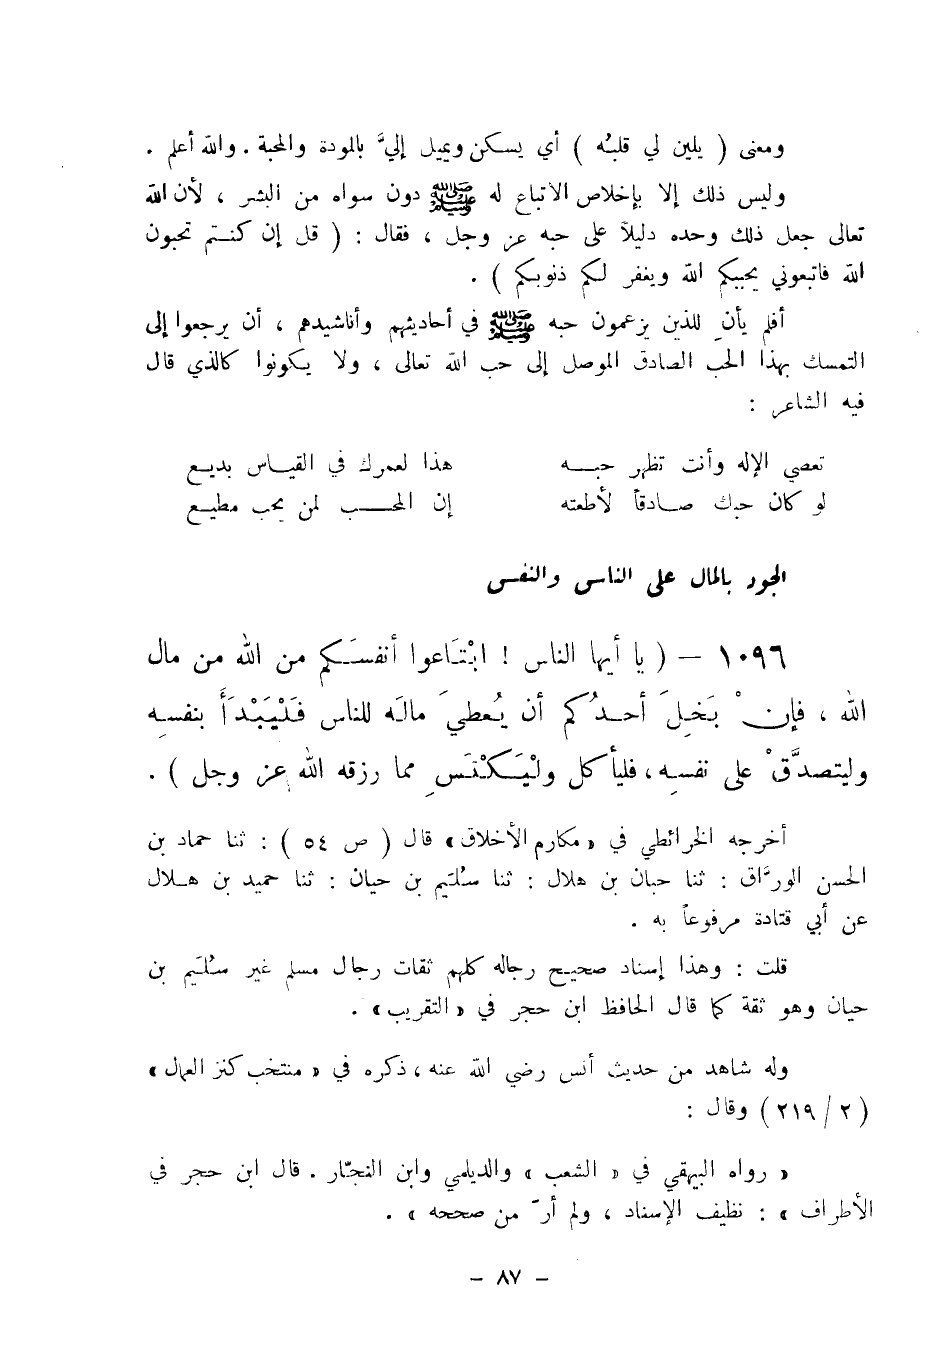 ومعنى ( يلين لي قلبُه ) أي يسكن ويميل إليَّ بالمودة والمحبة . والله أعلم .
وليس ذلك إلا بإخلاص الاتباع له ﷺ دون سواه من البشر ، لأن الله
تعالى جعل ذلك وحده دليلاً على حبه عز وجل ، فقال : ( قل إن كنتم تحبون
الله فاتبعوني يحببكم الله ويغفر لكم ذنوبكم ) .
أفلم يأنِ للذين يزعمون حبه ﷺ في أحاديثهم وأناشيدهم ، أن يرجعوا إلى
التمسك بهذا الحب الصادق الموصل إلى حب الله تعالى ، ولا يكونوا كالذي قال
فيه الشاعر :
تعصي الإله وأنت تظهر حبه هذا لعمرك في القياس بديع
لو كان حبك صادقاً لأطعته إن المحب لمن يحب مطيع
الجود بالمال على الناس والنفس
١٠٩٦ – ( يا أيها الناس ! ابْتَاعوا أنفسَكم من الله من مال
الله ، فإنْ بَخِلَ أحدُكم أن يُعطيَ مالَه للناس فَلْيَبْدَأْ بنفسِه
وليتصدَّقْ على نفسِه ، فليأكل ولْيَكْتَسِ مما رزقه الله عز وجل ) .
أخرجه الخرائطي في « مكارم الأخلاق » قال ( ص ٥٤ ) : ثنا حماد بن
الحسن الورَّاق : ثنا حبان بن هلال : ثنا سُلَيم بن حيان : ثنا حميد بن هلال
عن أبي قتادة مرفوعاً به .
قلت : وهذا إسناد صحيح رجاله كلهم ثقات رجال مسلم غير سُلَيم بن
حيان وهو ثقة كما قال الحافظ ابن حجر في « التقريب » .
وله شاهد من حديث أنس رضي الله عنه ، ذكره في « منتخب كنز العمال »
( ٢ / ٢١٩ ) وقال :
« رواه البيهقي في « الشعب » والديلمي وابن النجّار . قال ابن حجر في
الأطراف » : نظيف الإسناد ، ولم أرَ من صححه » .
– ٨٧ –